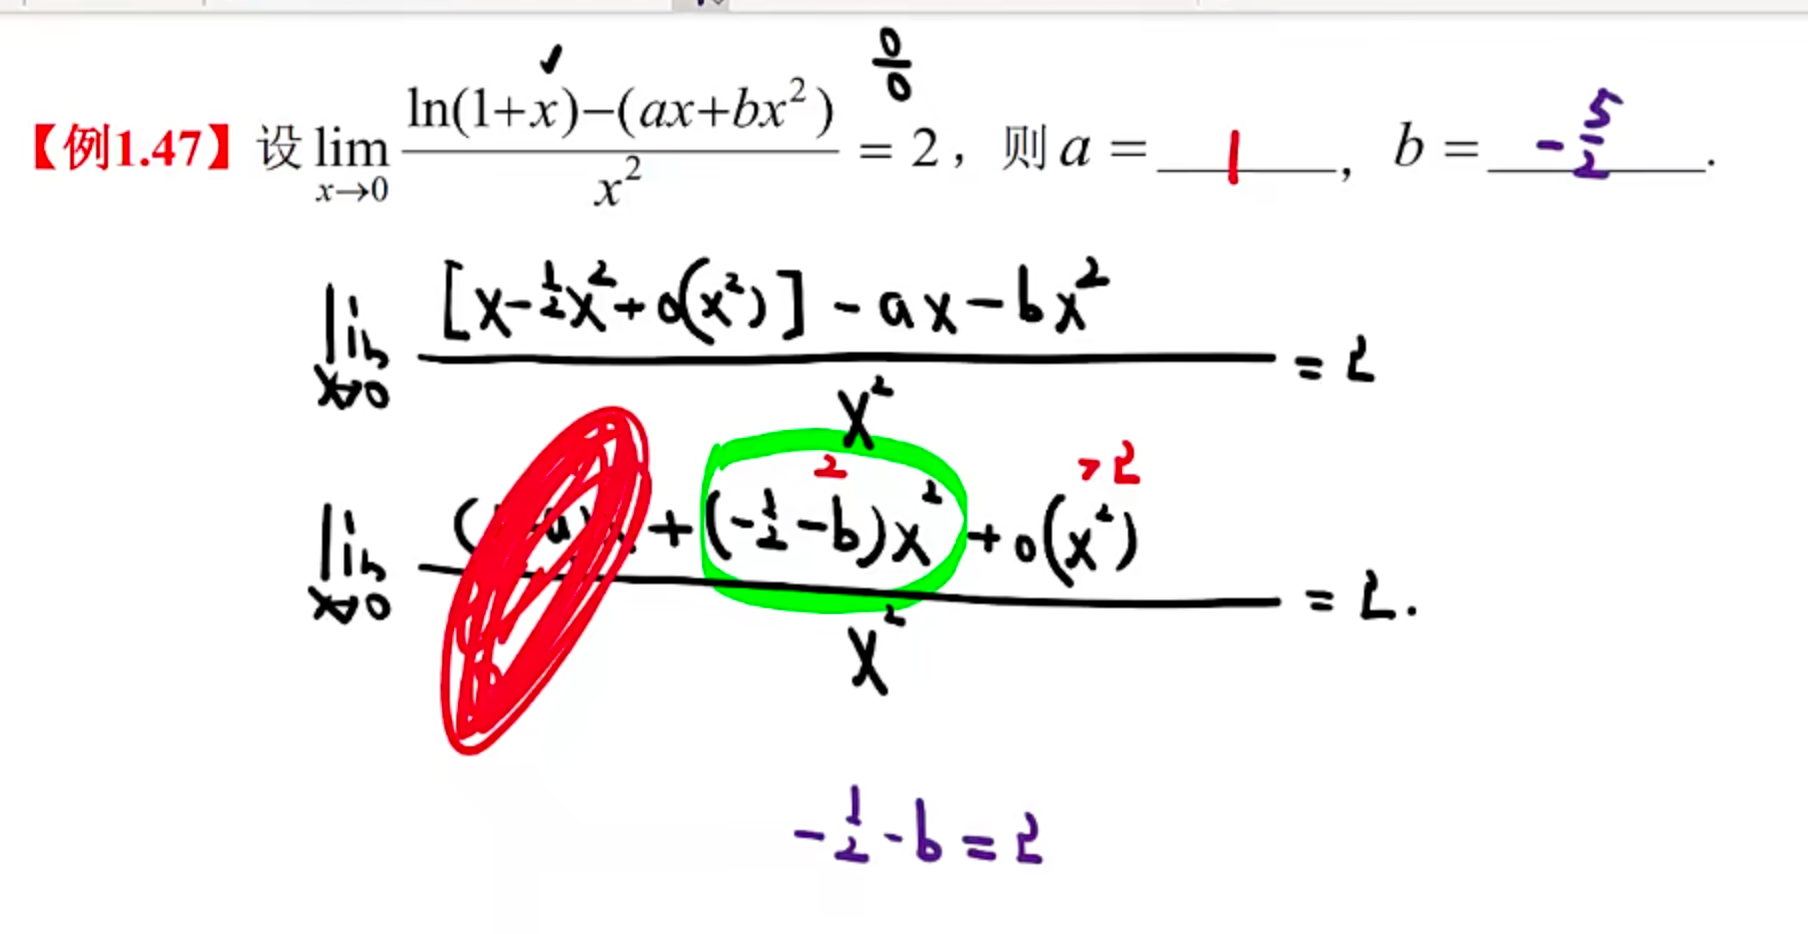 【例1.47】设 lim x→0 ln(1+x)−(ax+bx²) / x² = 2，则 a = 1， b = −5/2.
0/0
lim x→0 [x−½x²+o(x²)]−ax−bx² / x² = 2
2 >2
lim x→0 +(−½−b)x²+o(x²) / x² = 2.
−½−b=2